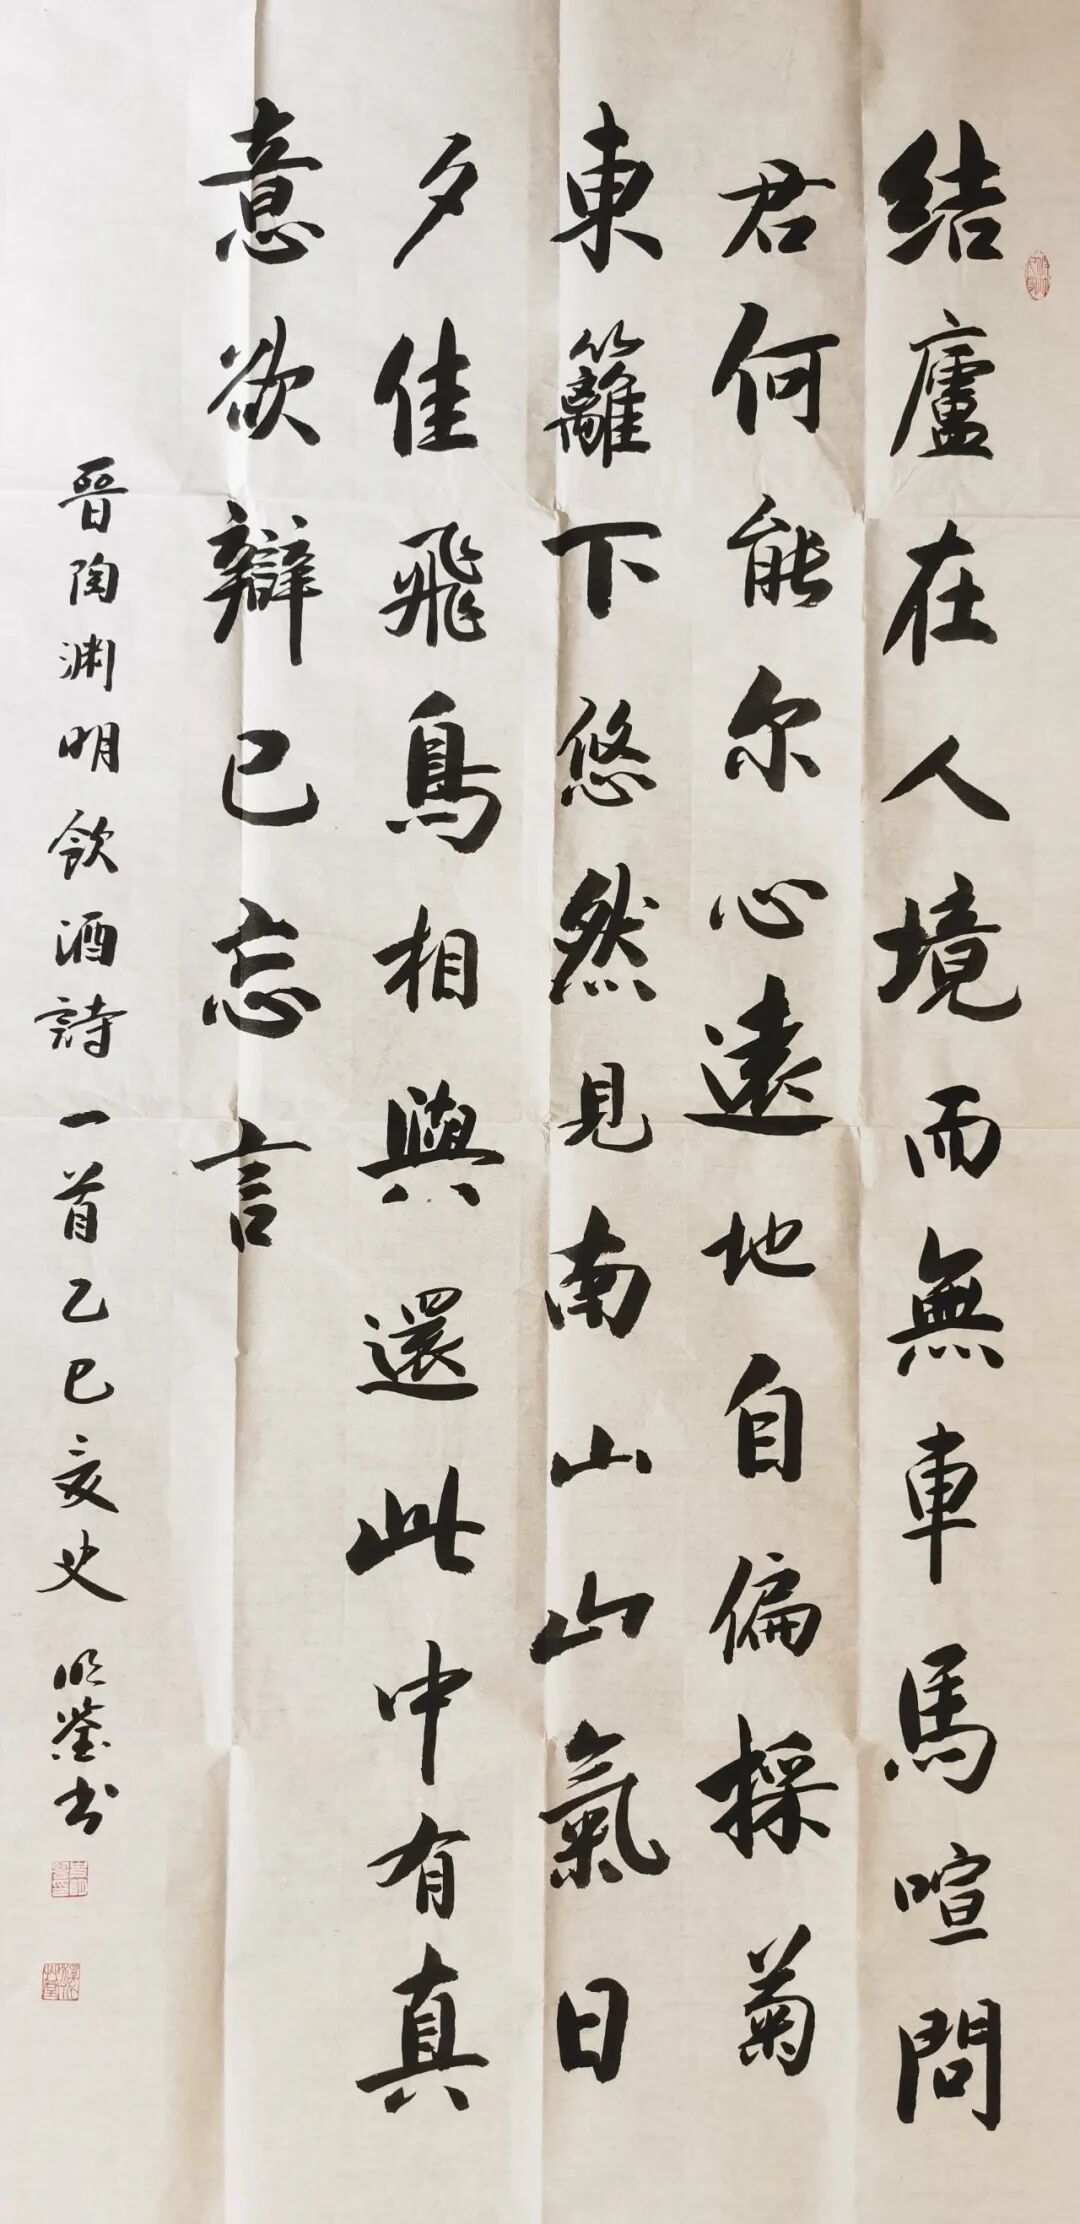 結廬在人境而無車馬喧問
君何能尔心遠地自偏採菊
東籬下悠然見南山山氣日
夕佳飛鳥相與還此中有真
意欲辯已忘言
晉陶淵明飲酒詩一首乙巳夏文明鑒書